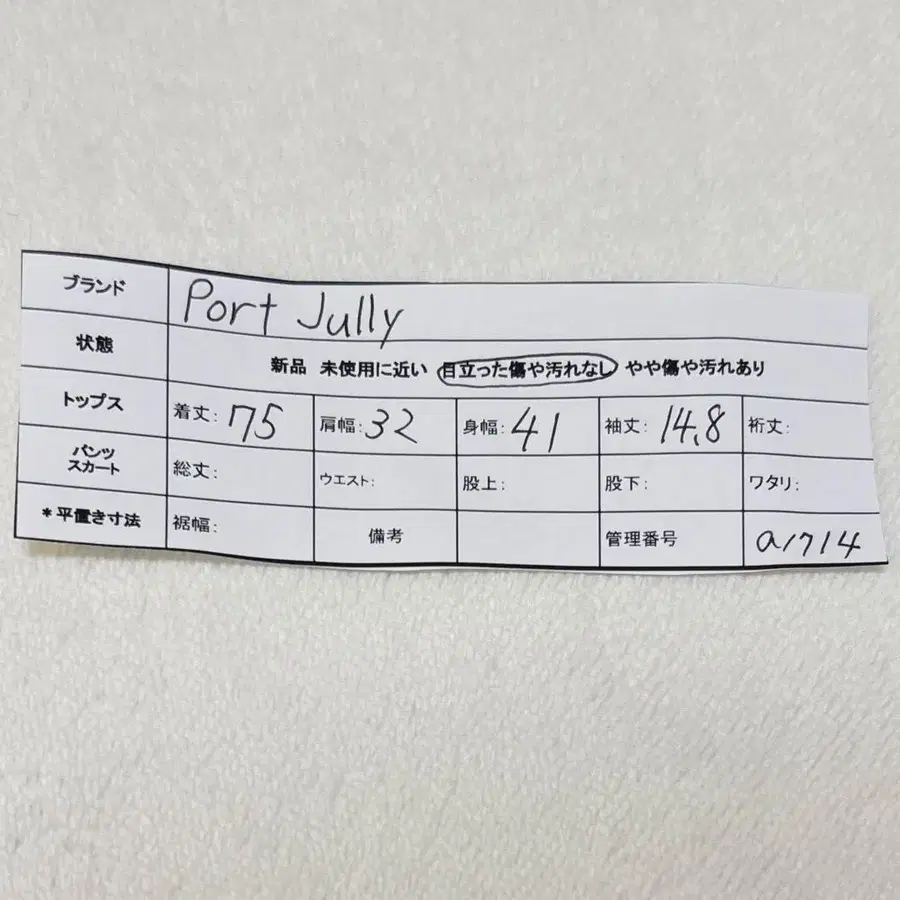 ブランド Port Jully
状態 新品 未使用に近い 目立った傷や汚れなし やや傷や汚れあり
トップス 着丈: 75 肩幅: 32 身幅: 41 袖丈: 14.8 裄丈:
パンツ
スカート 総丈: ウエスト: 股上: 股下: ワタリ:
*平置き寸法 裾幅: 備考 管理番号 a1714